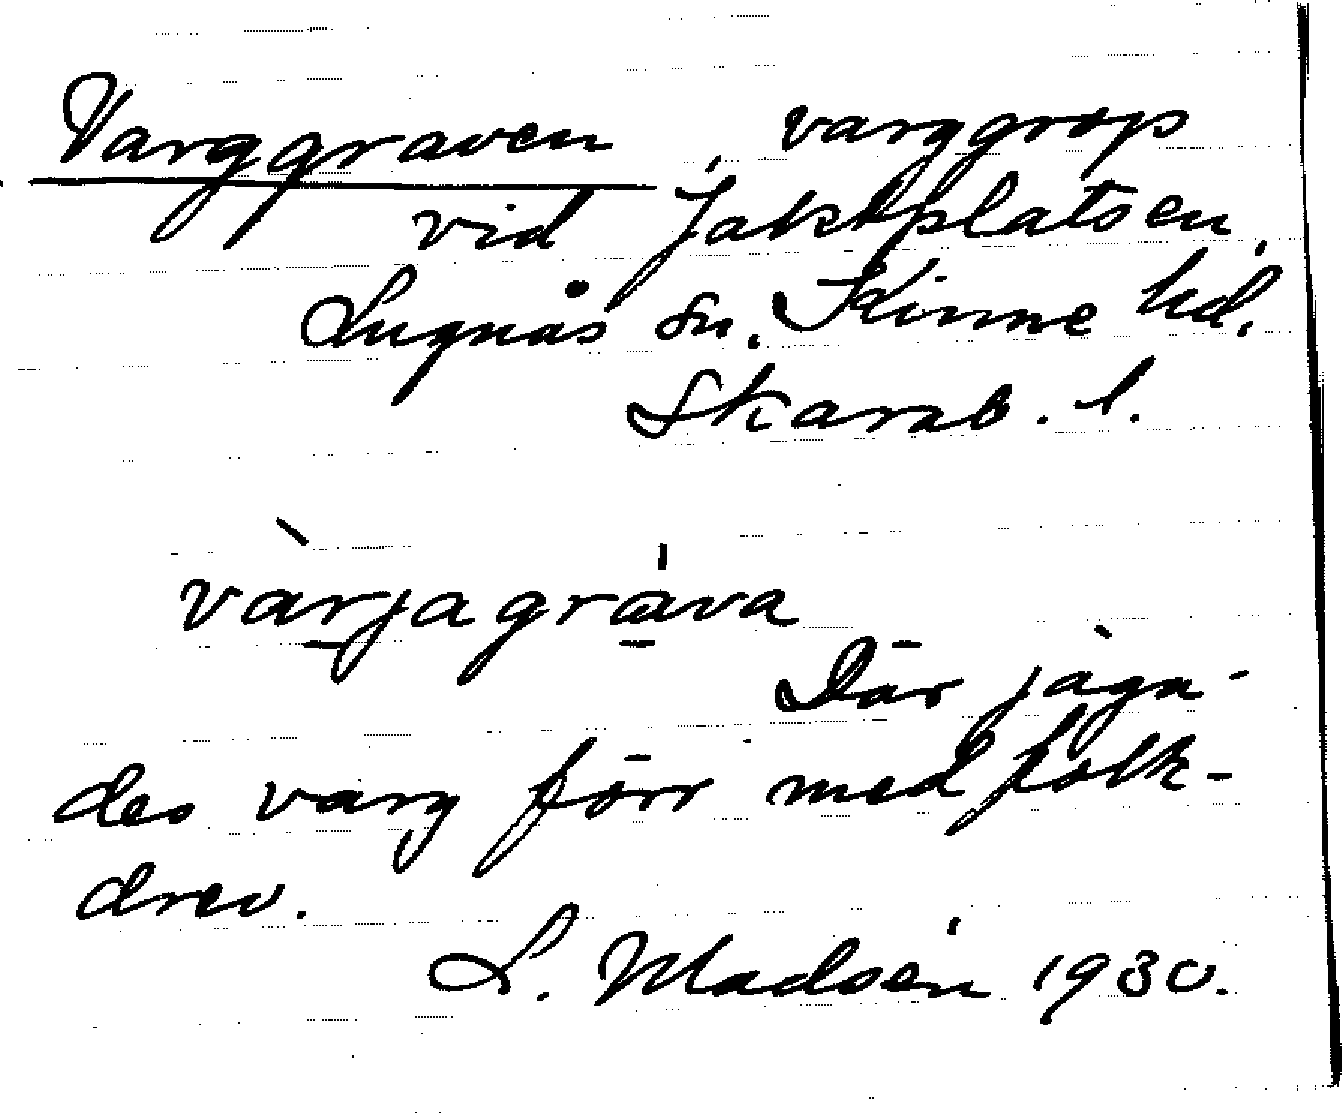 Varggraven, varggrop
vid Jaktplatsen,
Lugnås sn. Kinne hd.
Skarab. l.
vàrjagráva
Där jàga-
des varg förr med folk-
drev.
L. Madsén 1930.